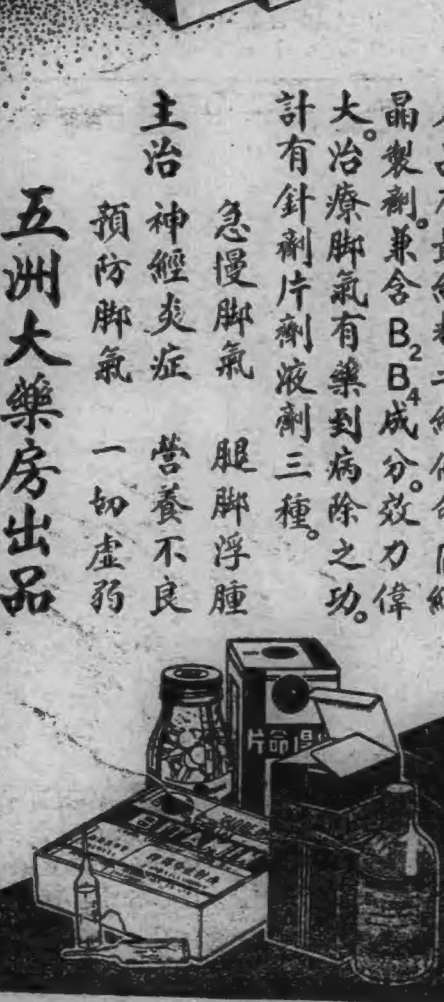 晶製劑。兼含B₂B₄成分。效力偉
大。治療脚氣有藥到病除之功。
計有針劑片劑液劑三種。
急慢脚氣 腿脚浮腫
主治 神經炎症 營養不良
預防脚氣 一切虛弱
五洲大藥房出品
片命